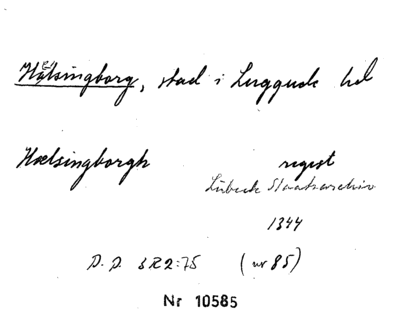 Hälsingborg, stad i Luggude hd
Hælsingborgh regest
Lübeck Staatsarchiv
1344
D. D. 3 R 2:75 (nr 85)
Nr 10585